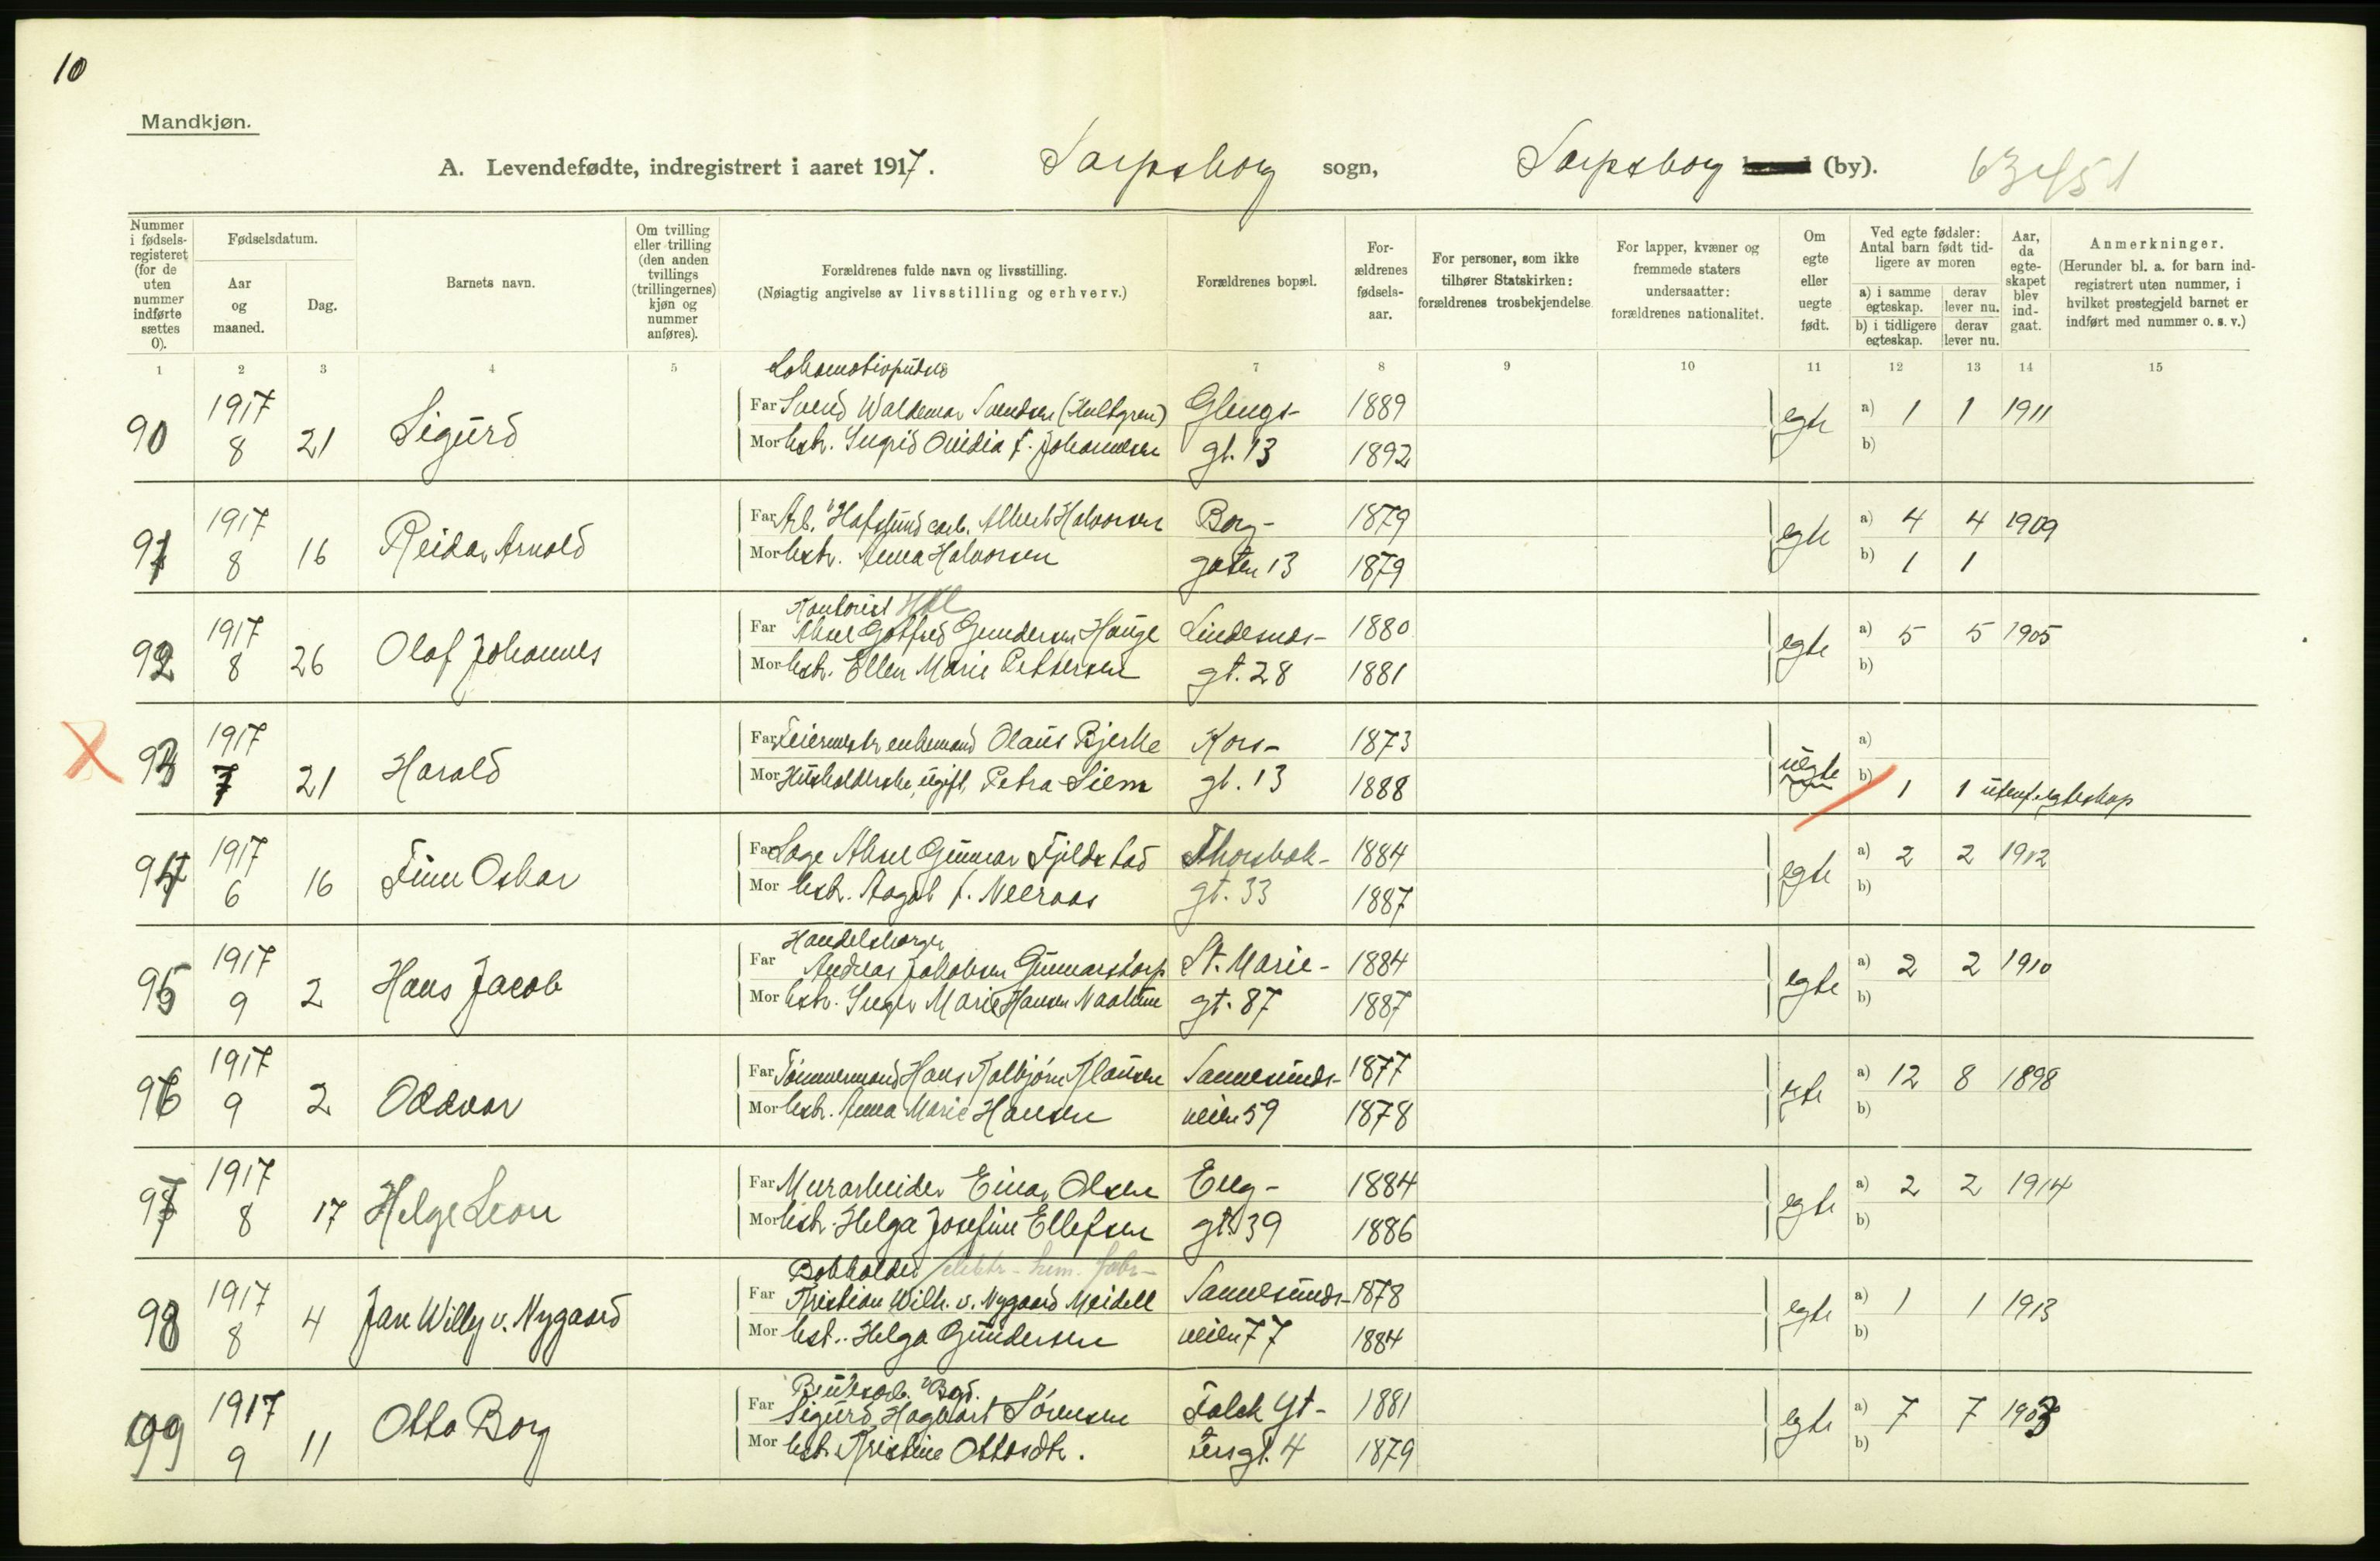 10
Mandkjøn.
A. Levendefødte, indregistrert i aaret 1917. Sarpsborg sogn, Sarpsborg (by).
Nummer i fødselsregisteret (for de uten nummer indførte sættes 0).
Fødselsdatum.
Aar og maaned.
Dag.
Barnets navn.
Om tvilling eller trilling (den anden tvillings (trillingernes) kjøn og nummer anføres).
Forældrenes fulde navn og livsstilling.
(Nøiagtig angivelse av livsstilling og erhverv.)
Forældrenes bopæl.
Forældrenes fødselsaar.
For personer, som ikke tilhører Statskirken: forældrenes trosbekjendelse.
For lapper, kvæner og fremmede staters undersaatter: forældrenes nationalitet.
Om egte eller uegte født.
Ved egte fødsler: Antal barn født tidligere av moren
a) i samme egteskap. derav lever nu.
b) i tidligere egteskap. derav lever nu.
Aar, da egteskapet blev indgaat.
Anmerkninger.
(Herunder bl. a. for barn indregistrert uten nummer, i hvilket prestegjeld barnet er indført med nummer o. s. v.)
1 2 3 4 5 7 8 9 10 11 12 13 14 15
Lokomotivpudser
1917 Far Svend Waldemar Svendsen (Hultgren) Glengs- 1889 egte a) 1 1 1911
90 8 21 Sigurd Mor hstr. Ingrid Ovidia f. Johannesen gt. 13 1892 b)
1917 Far Arb. Hafslund carb. Albert Halvorsen Borg- 1879 egte a) 4 4 1909
91 8 16 Reidar Arnold Mor hstr. Anna Halvorsen gaten 13 1879 b) 1 1
Kontorist
1917 Far Aksel Gotfred Gundersen Hauge Lindesnæs- 1880 egte a) 5 5 1905
92 8 26 Olaf Johannes Mor hstr. Ellen Marie Pettersen gt. 28 1881 b)
1917 Far Feiermestr enkemand Olaus Bjerke Kors- 1873 uegte a)
93 7 21 Harald Mor Husholderske, ugift, Petra Siem gt. 13 1888 b) 1 1 utenf. egteskap
1917 Far Aksel Gunnar Fjeldstad Thorsbek- 1884 egte a) 2 2 1912
94 6 16 Finn Oskar Mor hstr. Aagot f. Neeraas gt. 33 1887 b)
Handelsborger
1917 Far Andreas Jakobsen Gunnarstorp St. Marie- 1884 egte a) 2 2 1910
95 9 2 Hans Jacob Mor hstr. Inger Marie Hansen Navestad gt. 87 1887 b)
1917 Far Tømmermand Hans Kolbjørn Klausen Sannesunds- 1877 egte a) 12 8 1898
96 9 2 Oddvar Mor hstr. Anna Marie Hansen veien 59 1878 b)
1917 Far Murarbeider Einar Olsen Eng- 1884 egte a) 2 2 1914
97 8 17 Helge Leon Mor hstr. Helga Josefine Ellefsen gt. 39 1886 b)
Bokholder elektr. kem. fabr.
1917 Far Kristian Wilh. v. Nygaard Meidell Sannesunds- 1878 egte a) 1 1 1913
98 8 4 Jan Willy v. Nygaard Mor hst. Helga Gundersen veien 77 1884 b)
1917 Far Sigurd Hagbart Sørensen Falck Yt- 1881 egte a) 7 7 1903
99 9 11 Otto Borg Mor hst. Kristine Ottosdtr. ters gt. 4 1879 b)